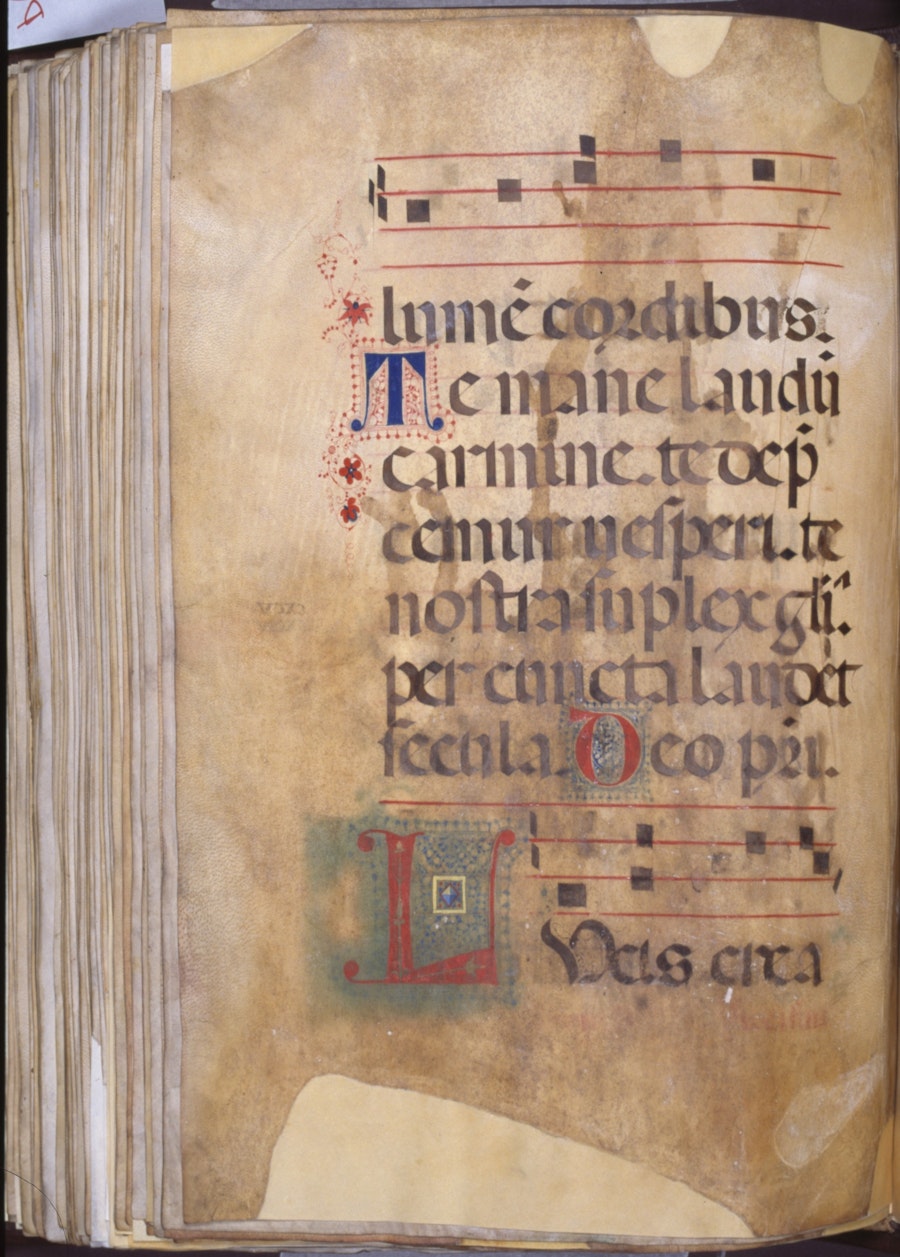 lumē cordibus.
Te mane laudū
carmine. te dep̄
cemur uesperi. te
nostra suplex gli̅a.
per cuncta laudet
secula. Deo pr̄i.
LVcis crea